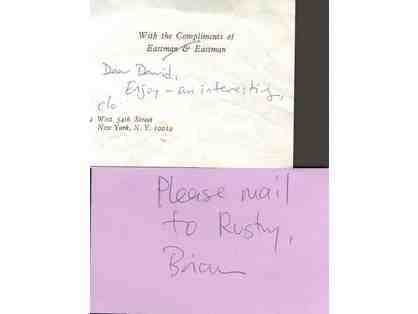 With the Compliments of
Eastman & Eastman
Dear David,
Enjoy - an interesting,
c/o
West 54th Street
New York, N. Y. 10019
Please mail
to Rusty,
Brian